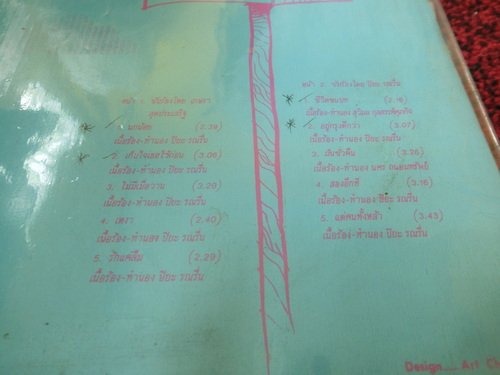 หน้า 1. ขับร้องโดย เกษรา
สุดประเสริฐ
1. นกน้อย (2.39)
เนื้อร้อง-ทำนอง ปิยะ รณรื่น
2. เก็บใจเธอไว้ก่อน (3.06)
เนื้อร้อง-ทำนอง ปิยะ รณรื่น
3. ไม่มีเมื่อวาน (3.29)
เนื้อร้อง-ทำนอง ปิยะ รณรื่น
4. เหงา (2.40)
เนื้อร้อง-ทำนอง ปิยะ รณรื่น
5. รักแค่ลืม (2.29)
เนื้อร้อง-ทำนอง ปิยะ รณรื่น
หน้า 2. ขับร้องโดย ปิยะ รณรื่น
1. ชีวิตชนบท (2.16)
เนื้อร้อง-ทำนอง
2. อยู่กรุงดีกว่า (3.07)
เนื้อร้อง-ทำนอง ปิยะ รณรื่น
3. (3.26)
เนื้อร้อง-ทำนอง พทร ถนอมทรัพย์
4. สองอีกที (3.16)
เนื้อร้อง-ทำนอง ปิยะ รณรื่น
5. แด่คนทั้งหล้า (3.43)
เนื้อร้อง-ทำนอง ปิยะ รณรื่น
Design.... Art